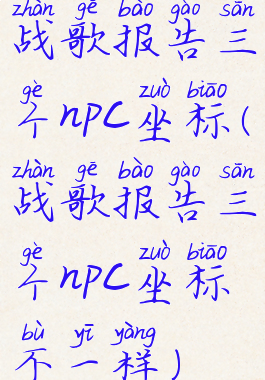 zhàn gē bào gào sān
战歌报告三
gè zuò biāo
个npc坐标(
zhàn gē bào gào sān
战歌报告三
gè zuò biāo
个npc坐标
bù yī yàng
不一样)